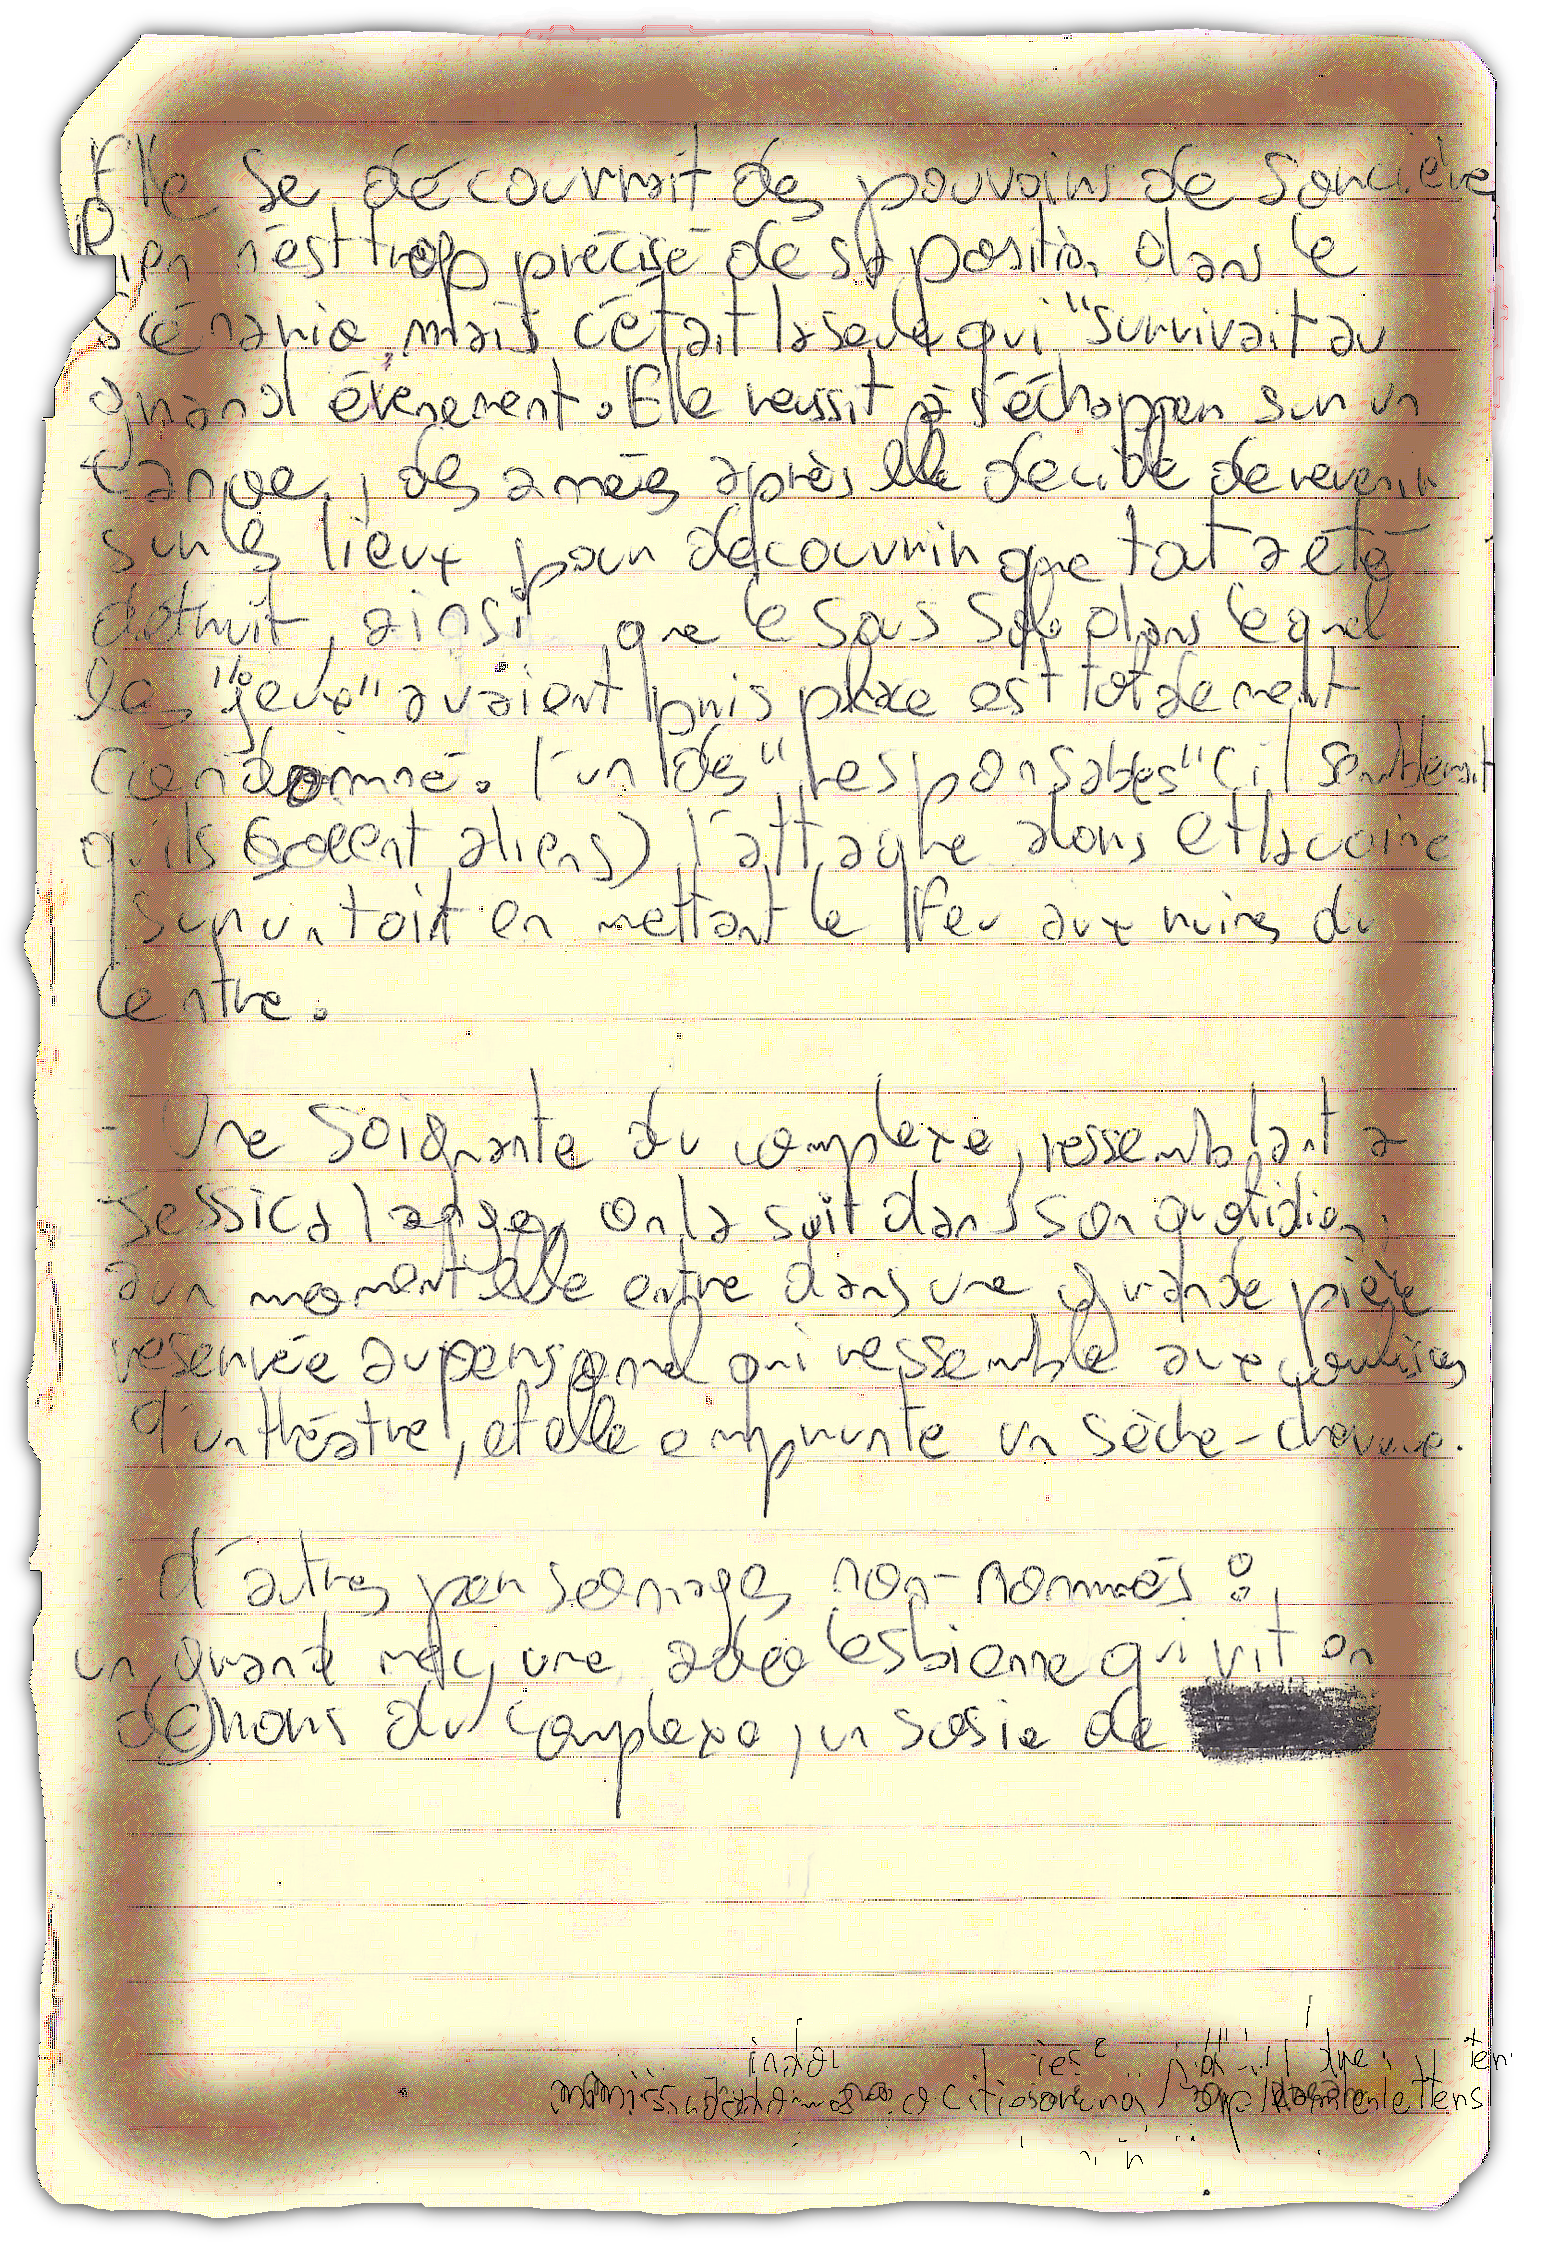 Elle se découvrait des pouvoirs de sorcière
Rien n'est trop précisé de sa position dans le
scénario, mais c'était la seule qui "survivait au
grand évènement. Elle reussit à s'échapper sur un
des années après elle decide de revenir
sur les lieux pour découvrir que tout a été
detruit, ainsi que le sous sol dans lequel
les "jeux" avaient pris place est totalement
condamné. l'un des "responsables" (il semblerait
qu'ils soient aliens) l'attaque alors et la coince
sur un toit en mettant le feu aux ruines du
Centre.
- Une soignante du complexe, ressemblant a
Jessica Lange, on la suit dans son quotidien,
a un moment elle entre dans une grande pièce
reservée au personnel qui ressemble aux coulisses
d'un théâtre, et elle emprunte un sèche-cheveux.
- d'autres personnages non-nommés :
un grand mec, une ado lesbienne qui vit en
dehors du complexe, un sosie de